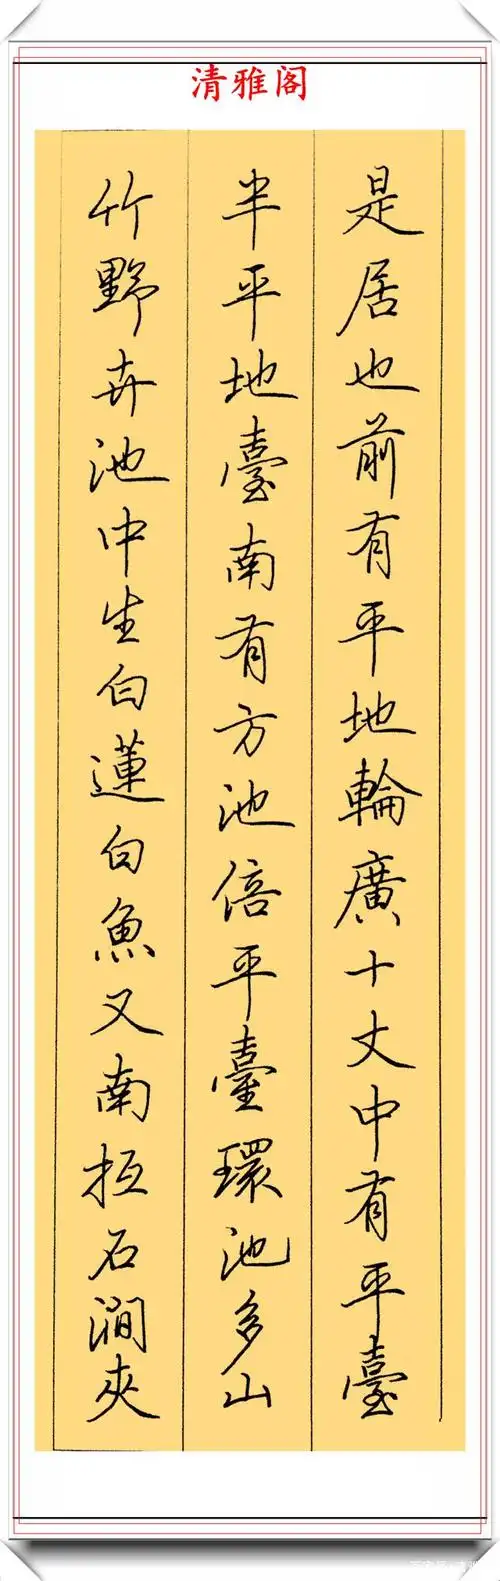 清雅阁
是居也前有平地輪廣十丈中有平臺
半平地臺南有方池倍平臺環池多山
竹野卉池中生白蓮白魚又南抵石澗夾